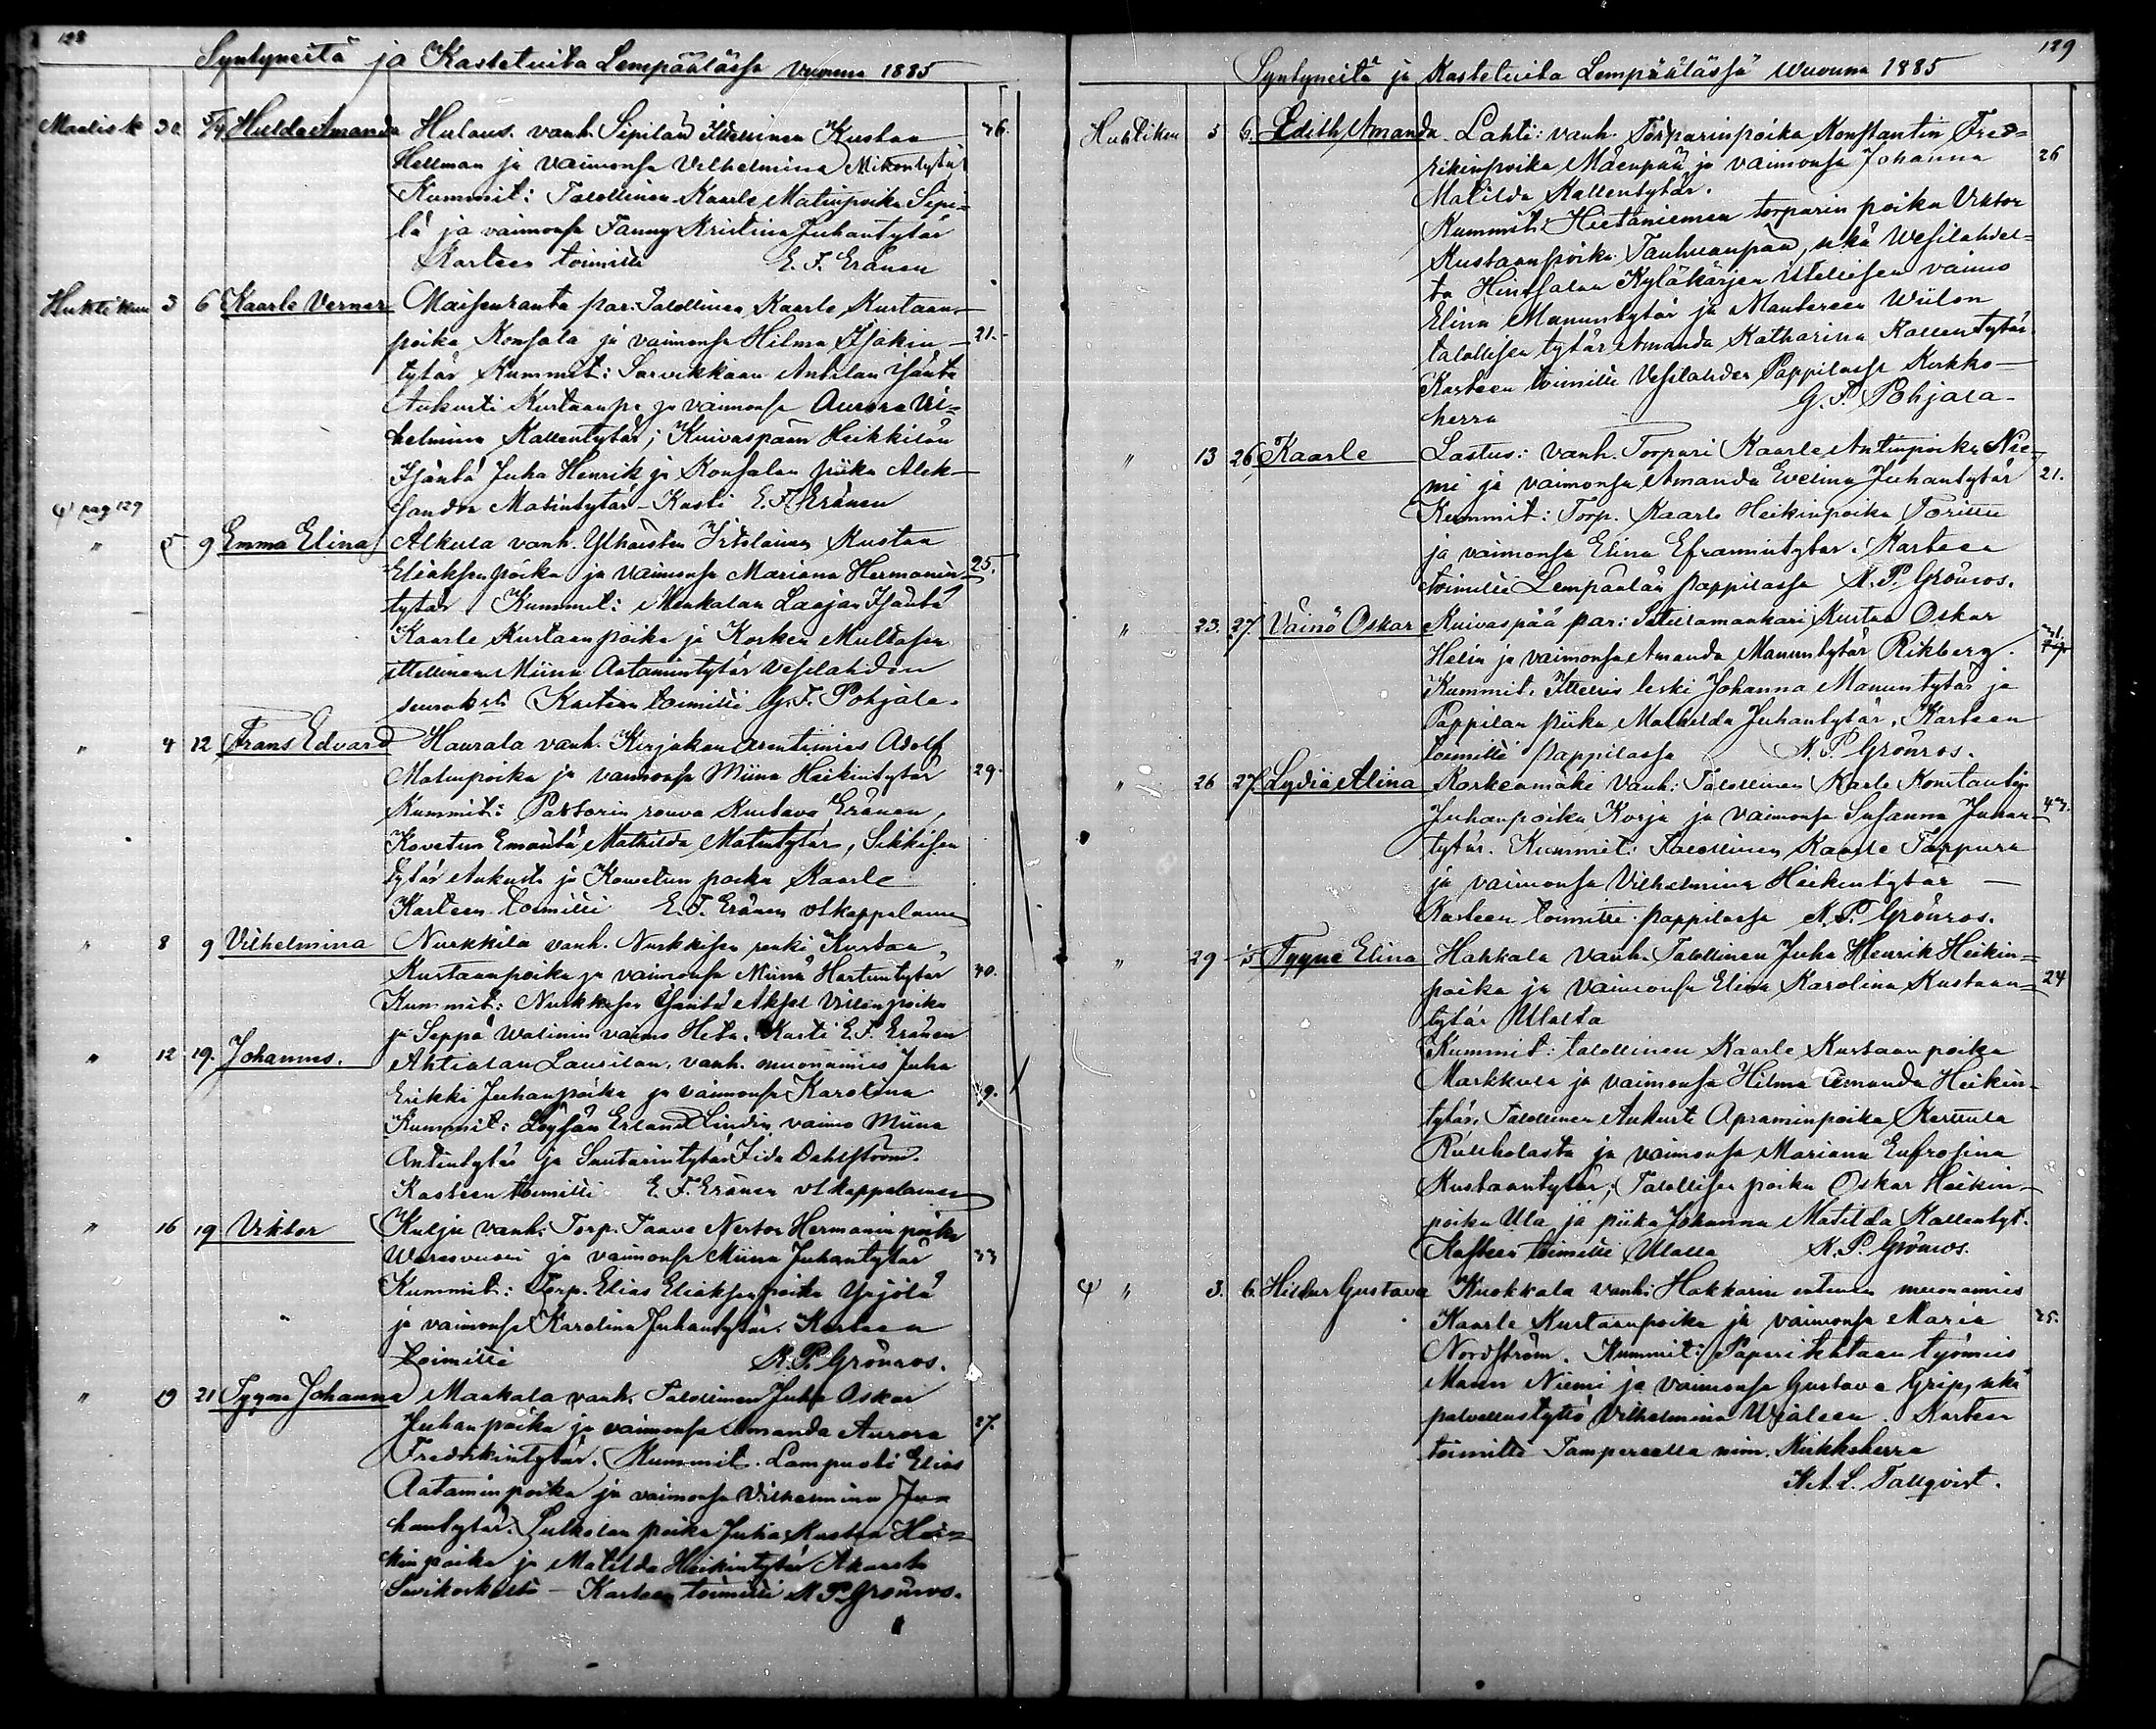 128
Syntyneitä ja Kastetuita Lempäälässä vuonna 1885
Maalisk 30. 5/4 Hulda Amanda Hulaus. vanh. Sipilän Itsellinen Kustaa 46.
Hellman ja vaimonsa Vilhelmina Mikontytär
Kummit: Talollinen Kaarle Matinpoika Sipi=
lä ja vaimonsa Fanny Kristina Juhantytär
Kasteen toimitti E. F. Eränen
Huhtikuu 3 6 Kaarle Verner Maisenranta par: Talollinen Kaarle Kustaan-
poika Konsala ja vaimonsa Hilma Isakin- 21.
tytär Kummit: Sarvikkaan Anttilan Isäntä
Aukusti Kustaanp. ja vaimonsa Aurora Vil=
helmina Kallentytär; Kuivaspään Heikkilän
Isäntä Juha Henrik ja Konsalan piika Alek-
sandra Matintytär - Kasti E. F. Eränen
φ pag 129
" 5 9 Emma Elina Alkula vanh. Itselainen Kustaa
Eliaksenpoika ja vaimonsa Mariana Hermanin- 25.
tytär Kummit: Laajan Isäntä
Kaarle Kustaanpoika ja Kosken
itsellinen Miina Aatamintytär Vesilahden
seurak:sta Kasteen toimitti G. F. Pohjala.
" 4 12 Frans Edvard Haurala vanh. Kirjakan arentimies Adolf
Matinpoika ja vaimonsa Miina Heikintytär 29.
Kummit: Pastorin rouva Kustava Eränen,
Emäntä Mathilda Matintytär, Sikkisen
tytär Aukusta ja poika Kaarle
Kasteen toimitti E. F. Eränen vt kappalainen
" 8 9 Vilhelmina Nurkkila vanh. Nurkkisen renki Kustaa
Kustaanpoika ja vaimonsa Miina 40.
Kummit: Isäntä Aksel Villenpoika
ja Seppä vaimo Heta. Kasti E. F. Eränen
" 12 19. Johannes. Ahtialan Lausilan, vanh. muonamies Juha
Erikki Juhanpoika ja vaimonsa Karolina
Kummit: Erland Lindin vaimo Miina
Antintytär ja Suutarintytär Iida Dahlström.
Kasteen toimitti E. F. Eränen vt kappalainen
" 16 19 Viktor Kulju vanh: Torp. Taavo Nestor Hermaninpoika
Waresvuori ja vaimonsa Miina Juhantytär 33
Kummit: Torp. Elias Eliaksenpoika Yrjölä
ja vaimonsa Karolina Juhantytär. Kasteen
toimitti K. P. Grönroos.
" 19 21 Tyyne Johanna Maakala vanh. Talollinen Juha Oskar
Juhanpoika ja vaimonsa Amanda Aurora 27.
Fredrikintytär. Kummit. Lampuoti Elias
Aataminpoika ja vaimonsa Vilhelmina Ju=
hantytär. poika Juha Kustaa Hei=
kinpoika ja Matilda Heikintytär
Kasteen toimitti K. P. Grönroos.
129
Syntyneitä ja Kastetuita Lempäälässä Wuonna 1885
Huhtikuu 5 6. Edith Amanda Lahti: vanh. Torparinpoika Konstantin Fred=
rikinpoika Mäenpää ja vaimonsa Johanna 26
Matilda Kallentytär.
Kummit: Hietaniemen torparin poika Viktor
Kustaanpoika Tanhuanpää, sekä Wesilahdel=
ta Hinsalan Kyläkärjen itsellisen vaimo
Elina Manuntytär ja Mantereen Wiilon
talollisen tytär Amanda Katharina Kallentytär.
Kasteen toimitti Vesilahden Pappilassa Kirkko-
herra G. F. Pohjala.
" 13 26 Kaarle Lastus: vanh. Torpari Kaarle Antinpoika Nie=
mi ja vaimonsa Amanda Evelina Juhantytär 21.
Kummit: Torp. Kaarlo Heikinpoika
ja vaimonsa Elina Eframintytär. Kasteen
toimitti Lempäälän pappilassa K. P. Grönroos.
" 23. 27. Väinö Oskar Kuivaspää par: Kustaa Oskar
Helin ja vaimonsa Amanda Manuntytär Rikberg.
Kummit. Itsellis leski Johanna Manuntytär ja
Pappilan piika Mathilda Juhantytär. Kasteen
toimitti pappilassa K. P. Grönroos.
" 26 27. Lydia Alina Korkeamäki Vanh: Talollinen Karle Konstantin
Juhanpoika Korja ja vaimonsa Susanna Juhan- 43.
tytär. Kummit: Talollinen Kaarle Tappura
ja vaimonsa Vilhelmina Heikintytär -
Kasteen toimitti pappilassa K. P. Grönroos.
" 29 Tyyne Elina Hakkala Vanh. Talollinen Juha Henrik Heikin=
poika ja Vaimonsa Elina Karolina Kustaan= 24
tytär Ulalta
Kummit: talollinen Kaarle Kustaanpoika
Markkula ja vaimonsa Hilma Amanda Heikin-
tytär. Talollinen Aukusti Apraminpoika
ja vaimonsa Mariana Eufrosina
Kustaantytär; Talollisen poika Oskar Heikin-
poika Ula ja piika Johanna Matilda Kallentyt.
Kasteen toimitti Ulalla K. P. Grönroos.
φ " 3. 6. Hildur Gustava Kuokkala vanh: Hakkarin entinen muonamies
Kaarle Kustaanpoika ja vaimonsa Maria 25.
Nordström. Kummit: Paperitehtaan työmies
Manu Niemi ja vaimonsa Gustava Grip, sekä
palvellustyttö Vilhelmina. Kasteen
toimitti Tampereella nim. Kirkkoherra
K. A. L. Tallqvist.